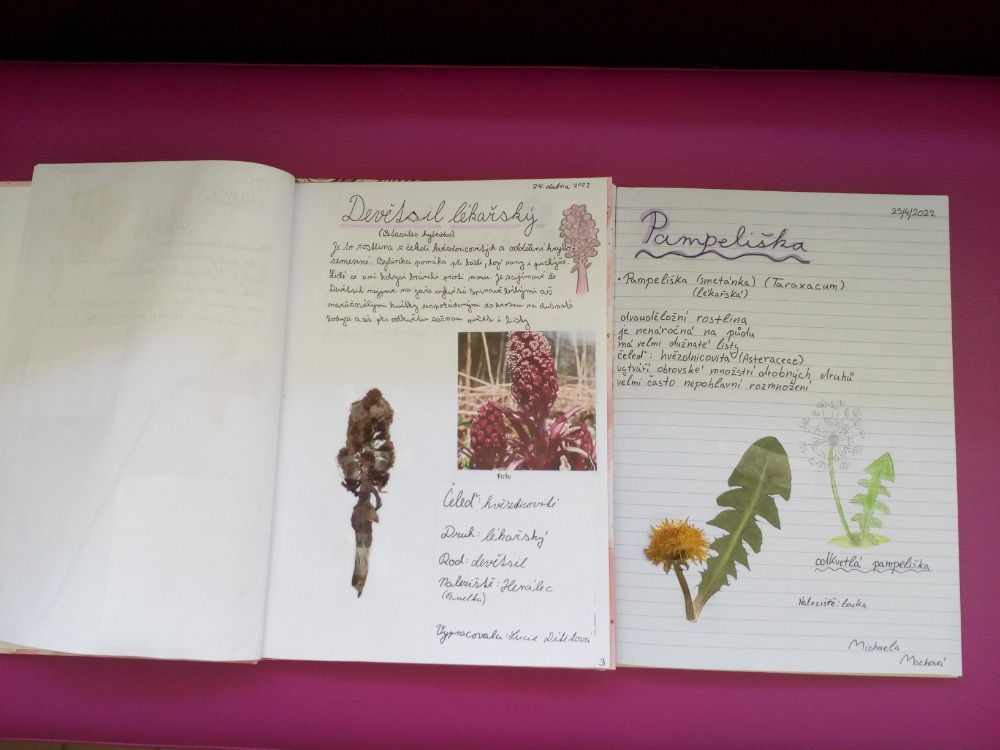 24. dubna 2022
Devětsil lékařský
(Petasites hybridus)
Je to rostlina z čeledi hvězdnicovitých a oddělení krytosemenné. Bylinka pomáhá při kašli, hojí rány i puchýře.
Lidé se s ní kdysi bránili proti moru. Je zajímavé že
Devětsil nejprve na jaře vykvítá špinavě bílými až
narůžovělými kvítky uspořádanými do hroznu na dužnaté
lodyze a až po odkvětu začnou pučet i listy
Foto
Čeleď: hvězdicovité
Druh: lékařský
Rod: devětsil
Naleziště: Herálec
Vypracovala: Lucie
3
23/4/2022
Pampeliška
• Pampeliška (smetánka) (Taraxacum)
(lékařská)
dvouděložní rostlina
je nenáročná na půdu
má velmi dužnaté listy
čeleď: hvězdnicovitá (Asteraceae)
vytváří obrovské množství drobných druhů
velmi často nepohlavní rozmnožení
odkvetlá pampeliška
Naleziště: louka
Michaela
Machová